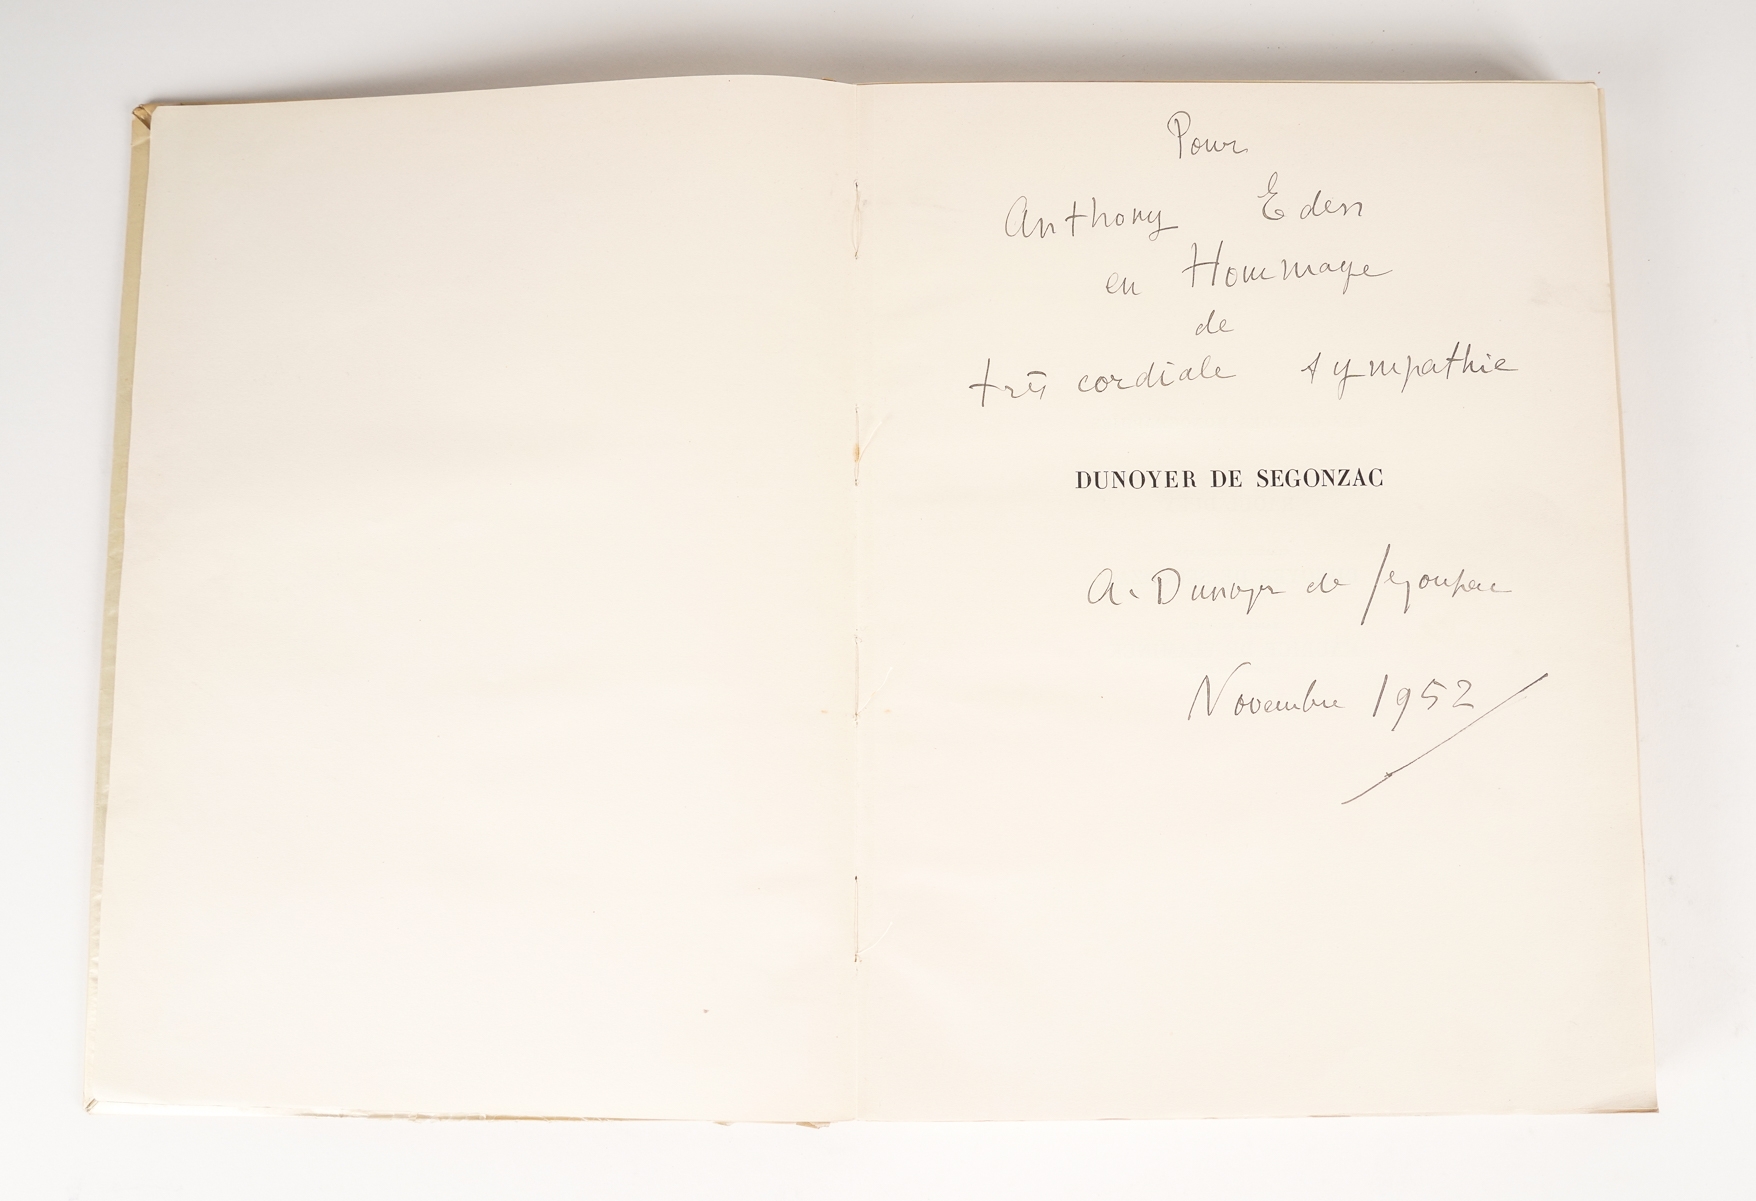 Pour
Anthony Eden
en Hommage
de
très cordiale sympathie
DUNOYER DE SEGONZAC
A. Dunoyer de Segonzac
Novembre 1952